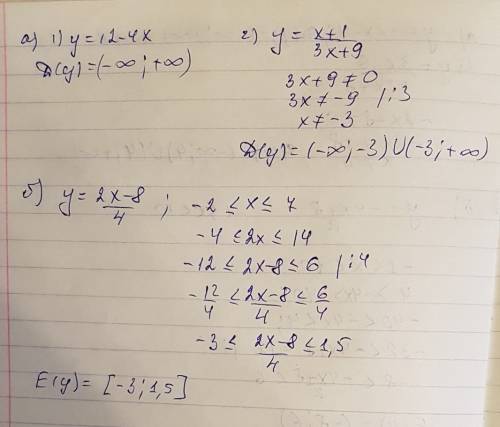 а) 1) y = 12-4x
D(y) = (-∞; +∞)
2) y = x+1/3x+9
3x+9≠0
3x≠-9 /:3
x≠-3
D(y) = (-∞; -3) U (-3; +∞)
б) y = 2x-8/4 ; -2 ≤ x ≤ 7
-4 ≤ 2x ≤ 14
-12 ≤ 2x-8 ≤ 6 /:4
-12/4 ≤ 2x-8/4 ≤ 6/4
-3 ≤ 2x-8/4 ≤ 1,5
E(y) = [-3; 1,5]